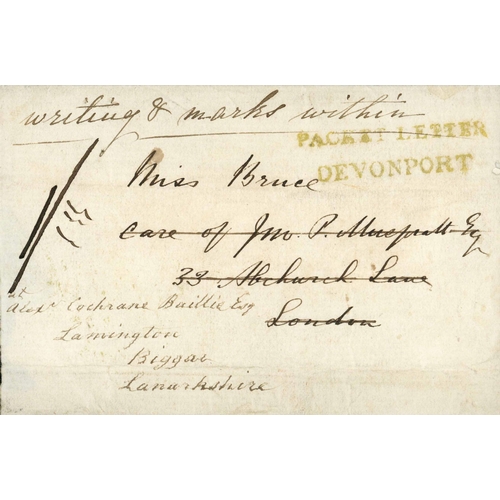 writing & marks within
PACKET LETTER
DEVONPORT
Miss Bruce
care of Jno. P. Muspratt Esq
33 Abchurch Lane
London
at
Alexr Cochrane Baillie Esq
Lamington
Biggar
Lanarkshire